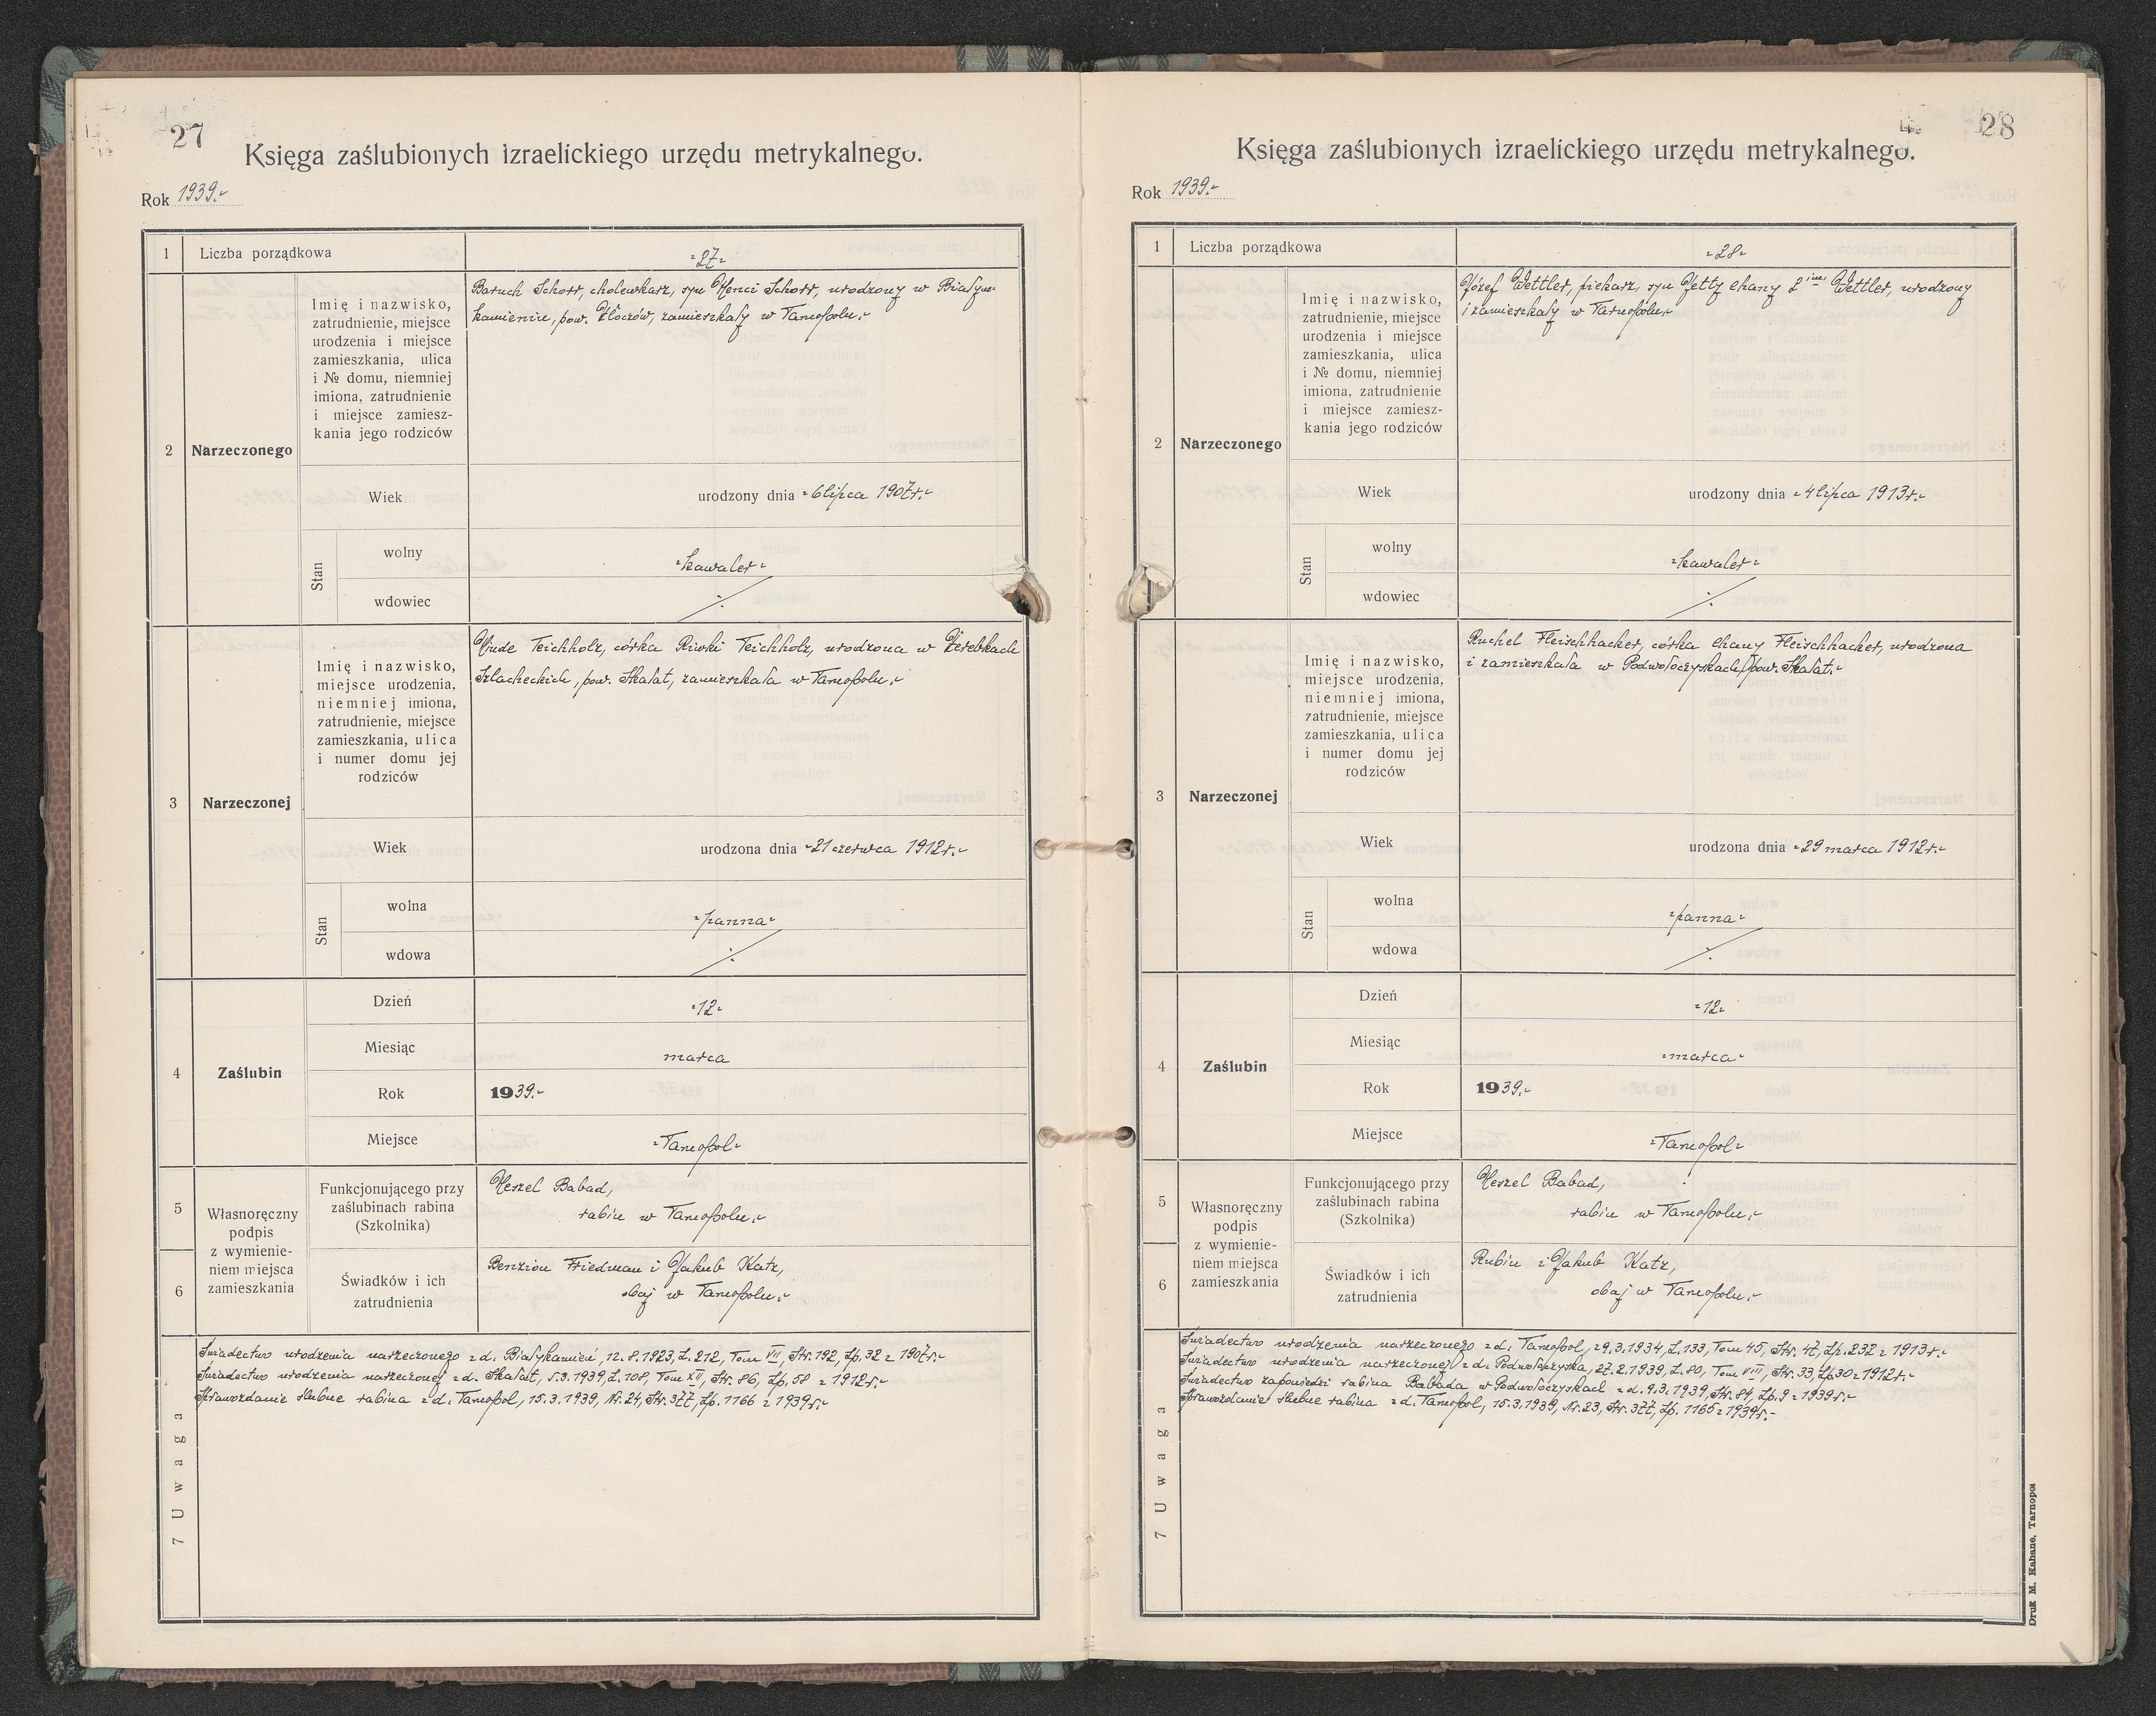 27
Księga zaślubionych izraelickiego urzędu metrykalnego.
Rok 1939.-
1 Liczba porządkowa -27-
2 Narzeczonego
Imię i nazwisko,
zatrudnienie, miejsce
urodzenia i miejsce
zamieszkania, ulica
i № domu, niemniej
imiona, zatrudnienie
i miejsce zamiesz-
kania jego rodziców
Baruch Schorr, cholewkarz, syn Henci Schorr, urodzony w Białym-
kamieniu, pow. Złoczów, zamieszkały w Tarnopolu.-
Wiek urodzony dnia -6 lipca 1907r.-
Stan
wolny -kawaler-
wdowiec ·/·
3 Narzeczonej
Imię i nazwisko,
miejsce urodzenia,
niemniej imiona,
zatrudnienie, miejsce
zamieszkania, ulica
i numer domu jej
rodziców
Hinde Teichholz, córka Riwki Teichholz, urodzona w Żerebkach
Szlacheckich, pow. Skałat, zamieszkała w Tarnopolu.-
Wiek urodzona dnia -21 czerwca 1912r.-
Stan
wolna -panna-
wdowa ·/·
4 Zaślubin
Dzień -12-
Miesiąc marca
Rok 1939.-
Miejsce -Tarnopol-
5
6
Własnoręczny
podpis
z wymienie-
niem miejsca
zamieszkania
Funkcjonującego przy
zaślubinach rabina
(Szkolnika)
Heszel Babad,
rabin w Tarnopolu.-
Świadków i ich
zatrudnienia
Benzion Friedman i Jakub Katz,
obaj w Tarnopolu.-
7 Uwaga
Świadectwo urodzenia narzeczonego z d. Białykamień, 12.8.1923, L.212, Tom VII, Str.192, Lp.32 z 1907r.-
Świadectwo urodzenia narzeczonej z d. Skałat, 5.3.1939, L.108, Tom XII, Str. 86, Lp. 58 z 1912r.-
Sprawozdanie ślubne rabina z d. Tarnopol, 15.3.1939, Nr.24, Str.377, Lp. 1166 z 1939r.-
28
Księga zaślubionych izraelickiego urzędu metrykalnego.
Rok 1939.-
1 Liczba porządkowa -28-
2 Narzeczonego
Imię i nazwisko,
zatrudnienie, miejsce
urodzenia i miejsce
zamieszkania, ulica
i № domu, niemniej
imiona, zatrudnienie
i miejsce zamiesz-
kania jego rodziców
Józef Wettler, piekarz, syn Jetty Chany 2 im. Wettler, urodzony
i zamieszkały w Tarnopolu.-
Wiek urodzony dnia -4 lipca 1913r.-
Stan
wolny -kawaler-
wdowiec ·/·
3 Narzeczonej
Imię i nazwisko,
miejsce urodzenia,
niemniej imiona,
zatrudnienie, miejsce
zamieszkania, ulica
i numer domu jej
rodziców
Ruchel Fleischhacker, córka Chany Fleischhacker, urodzona
i zamieszkała w Podwołoczyskach, pow. Skałat.-
Wiek urodzona dnia -29 marca 1912r.-
Stan
wolna -panna-
wdowa ·/·
4 Zaślubin
Dzień -12-
Miesiąc -marca-
Rok 1939.-
Miejsce -Tarnopol-
5
6
Własnoręczny
podpis
z wymienie-
niem miejsca
zamieszkania
Funkcjonującego przy
zaślubinach rabina
(Szkolnika)
Heszel Babad,
rabin w Tarnopolu.-
Świadków i ich
zatrudnienia
Rubin i Jakub Katz,
obaj w Tarnopolu.-
7 Uwaga
Świadectwo urodzenia narzeczonego z d. Tarnopol, 29.3.1934, L.133, Tom 45, Str. 47, Lp. 232 z 1913r.-
Świadectwo urodzenia narzeczonej z d. Podwołoczyska, 27.2.1939, L.80, Tom VIII, Str.33, Lp.30 z 1912r.-
Świadectwo zapowiedzi rabina Babada w Podwołoczyskach z d. 9.3.1939, Str. 84, Lp. 9 z 1939r.-
Sprawozdanie ślubne rabina z d. Tarnopol, 15.3.1939, Nr.23, Str.377, Lp. 1165 z 1939r.-
Druk M. Kahane, Tarnopol